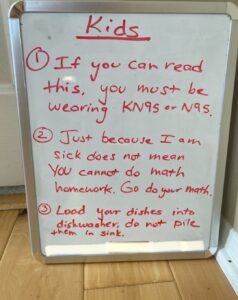 Kids
① If you can read
this, you must be
wearing KN95 or N95.
② Just because I am
sick does not mean
You cannot do math
homework. Go do your math.
③ Load your dishes into
dishwasher, do not pile
them in sink.